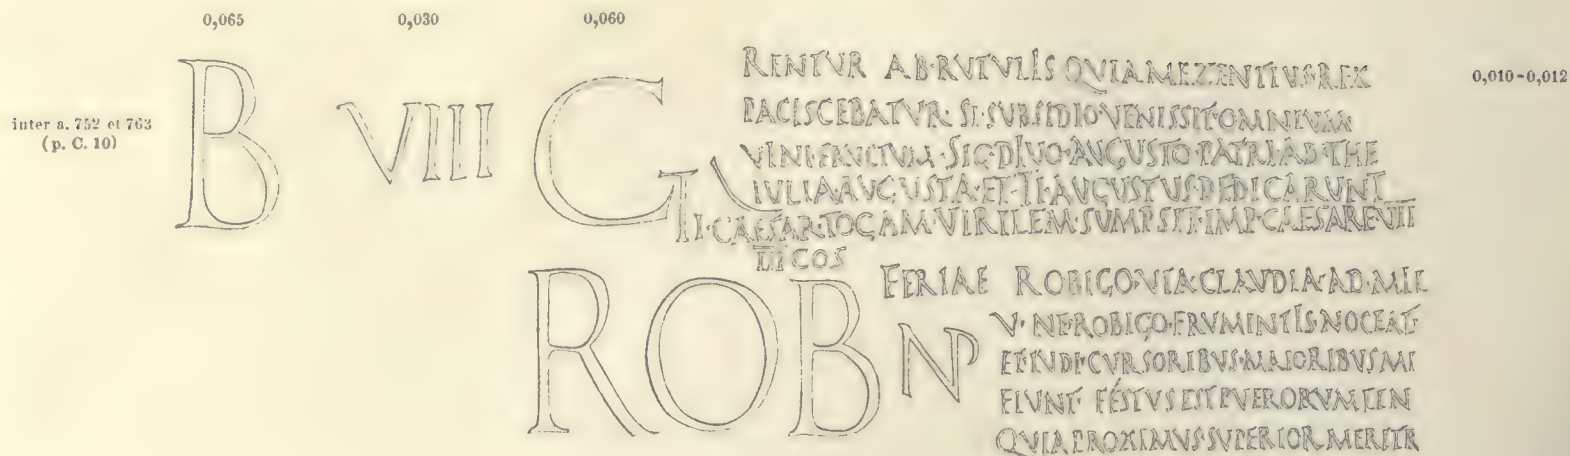 0,065 0,030 0,060
0,010-0,012
inter a. 752 et 763
(p. C. 10)
B VIII G
RENTVR AB·RVTVLIS QVIA MEZENTIVS·REX
PACISCEBATVR·SI·SVBSIDIO·VENISSIT·OMNIVM
VINI·FRVCTVM·SIG·DIVO·AVGUSTO·PATRI·AD·THE
IVLIA·AVGVSTA·ET·TI·AVGVSTUS·DEDICARVNT
TI·CAESAR·TOGAM·VIRILEM·SUMPSIT·IMP·CAESARE·VII
COS
ROB NP
FERIAE ROBIGO·VIA·CLAVDIA·AD·MIL
V·NE·ROBIGO·FRVMENTIS·NOCEAT·
ET·LVDI·CVRSORIBVS·MAIORIBVS MI
FIUNT· FÉSTVS EST PVERORVM LEN
QVIA PROXIMVS·SVPERIOR·MERETR